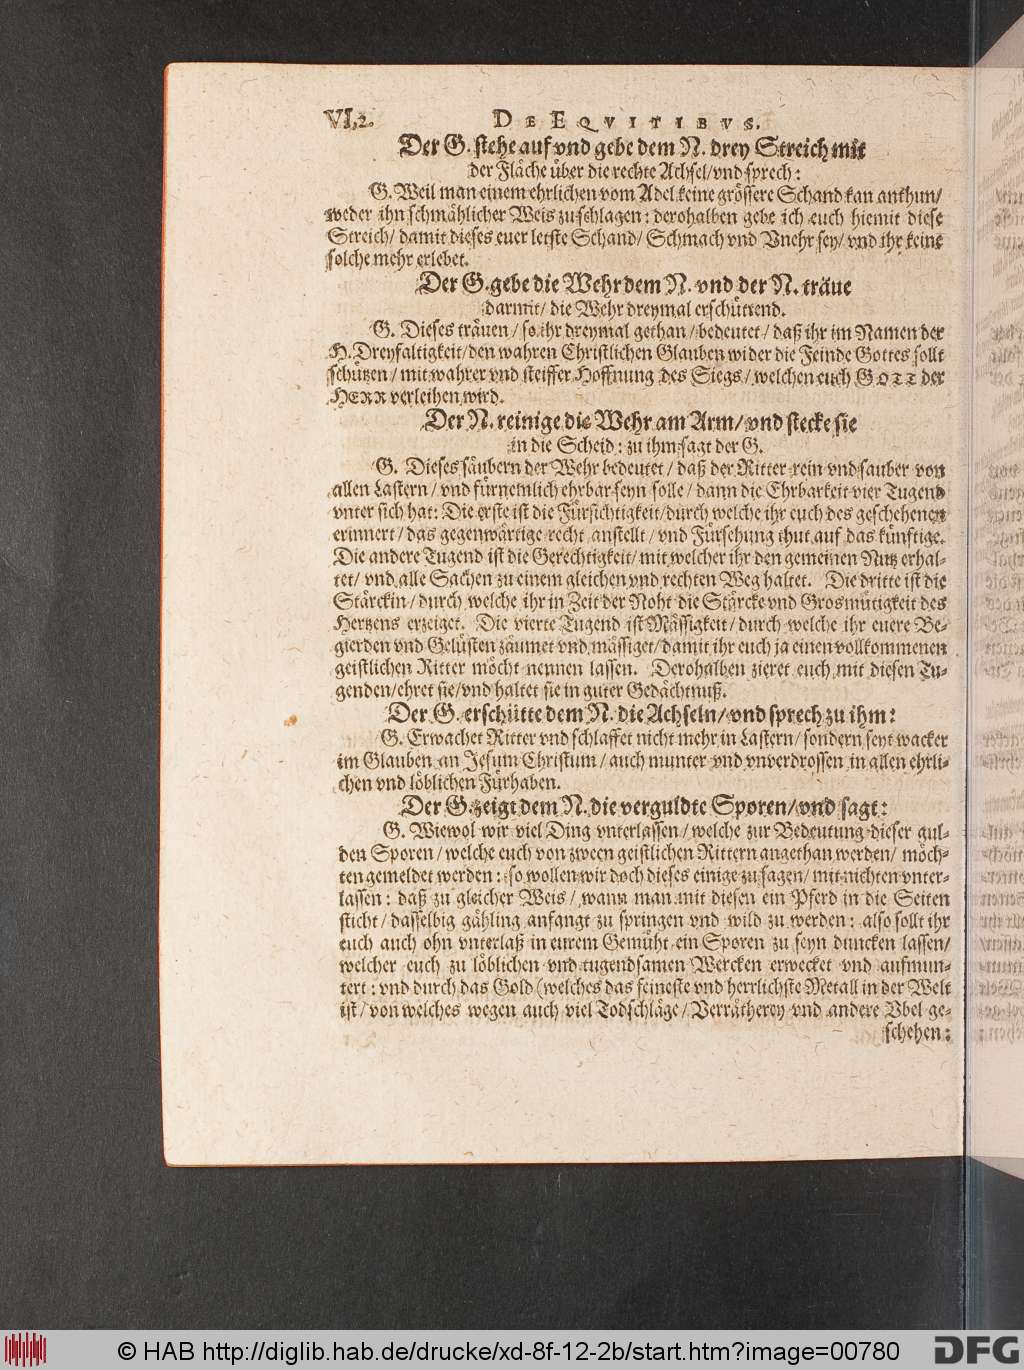 VI,2. DE EQVITIBVS.
Der G. stehe auf vnd gebe dem N. drey Streich mit
der Fläche über die rechte Achsel/vnd sprech:
G. Weil man einem ehrlichen vom Adel keine grössere Schand kan anthun/
weder ihn schmählicher Weis zuschlagen: derohalben gebe ich euch hiemit diese
Streich/ damit dieses euer letste Schand/ Schmach vnd Vnehr sey/ vnd ihr keine
solche mehr erlebet.
Der G. gebe die Wehr dem N. vnd der N. träue
darmit/ die Wehr dreymal erschüttend.
G. Dieses träuen/ so ihr dreymal gethan/ bedeutet/ daß ihr im Namen der
H. Dreyfaltigkeit/den wahren Christlichen Glauben wider die Feinde Gottes sollt
schützen/ mit wahrer vnd steiffer Hoffnung des Siegs/ welchen euch GOTT der
HERR verleihen wird.
Der N. reinige die Wehr am Arm/ vnd stecke sie
in die Scheid: zu ihm sagt der G.
G. Dieses säubern der Wehr bedeutet/ daß der Ritter rein vnd sauber von
allen Lastern/ vnd fürnemlich ehrbar seyn solle/ dann die Ehrbarkeit vier Tugend
vnter sich hat: Die erste ist die Fürsichtigkeit/durch welche ihr euch des geschehenen
erinnert/ das gegenwärtige recht anstellt/ vnd Fürsehung thut auf das künftige.
Die andere Tugend ist die Gerechtigkeit/ mit welcher ihr den gemeinen Nutz erhal-
tet/ vnd alle Sachen zu einem gleichen vnd rechten Weg haltet. Die dritte ist die
Stärckin/ durch welche ihr in Zeit der Noht die Stärcke vnd Grosmütigkeit des
Hertzens erzeiget. Die vierte Tugend ist Mässigkeit/ durch welche ihr euere Be-
gierden vnd Gelüsten zäumet vnd mässiget/ damit ihr euch ja einen vollkommenen
geistlichen Ritter möcht nennen lassen. Derohalben zieret euch mit diesen Tu-
genden/ehret sie/vnd haltet sie in guter Gedächtnuß.
Der G. erschütte dem N. die Achseln/ vnd sprech zu ihm:
G. Erwachet Ritter vnd schlaffet nicht mehr in Lastern/ sondern seyt wacker
im Glauben an Jesum Christum/ auch munter vnd vnverdrossen in allen ehrli-
chen vnd löblichen Fürhaben.
Der G. zeigt dem N. die verguldte Sporen/ vnd sagt:
G. Wiewol wir viel Ding vnterlassen/ welche zur Bedeutung dieser gul-
den Sporen/ welche euch von zween geistlichen Rittern angethan werden/ möch-
ten gemeldet werden: so wollen wir doch dieses einige zu sagen/ mit nichten vnter-
lassen: daß zu gleicher Weis/ wann man mit diesen ein Pferd in die Seiten
sticht/ dasselbig gähling anfangt zu springen vnd wild zu werden: also sollt ihr
euch auch ohn vnterlaß in eurem Gemüht ein Sporen zu seyn duncken lassen/
welcher euch zu löblichen vnd tugendsamen Wercken erwecket vnd aufmun-
tert: vnd durch das Gold (welches das feineste vnd herrlichste Metall in der Welt
ist/ von welches wegen auch viel Todschläge/ Verrätherey vnd andere Vbel ge-
schehen:
© HAB http://diglib.hab.de/drucke/xd-8f-12-2b/start.htm?image=00780
DFG